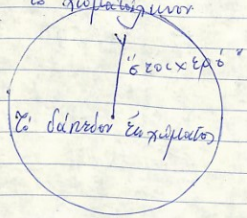 τὸ χωματάλωνον
"στοιχερό"
Τὸ δάπεδον ἐκ χώματος